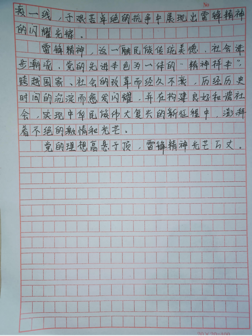 救一线，于艰苦卓绝的抗争中展现出雷锋精神
的闪耀光辉。
雷锋精神，这一融民族传统美德、社会进
步潮流、党的先进本色为一体的"精神祥丰"，
跨越国家、社会的改革而经久不衰，历经历史
时间的沉淀而愈发闪耀，并在构建良好和谐社
会，实现中华民族伟大复兴的新征程中，澎湃
着不绝的激情和光芒。
党的理想高悬于顶，雷锋精神光芒万丈。